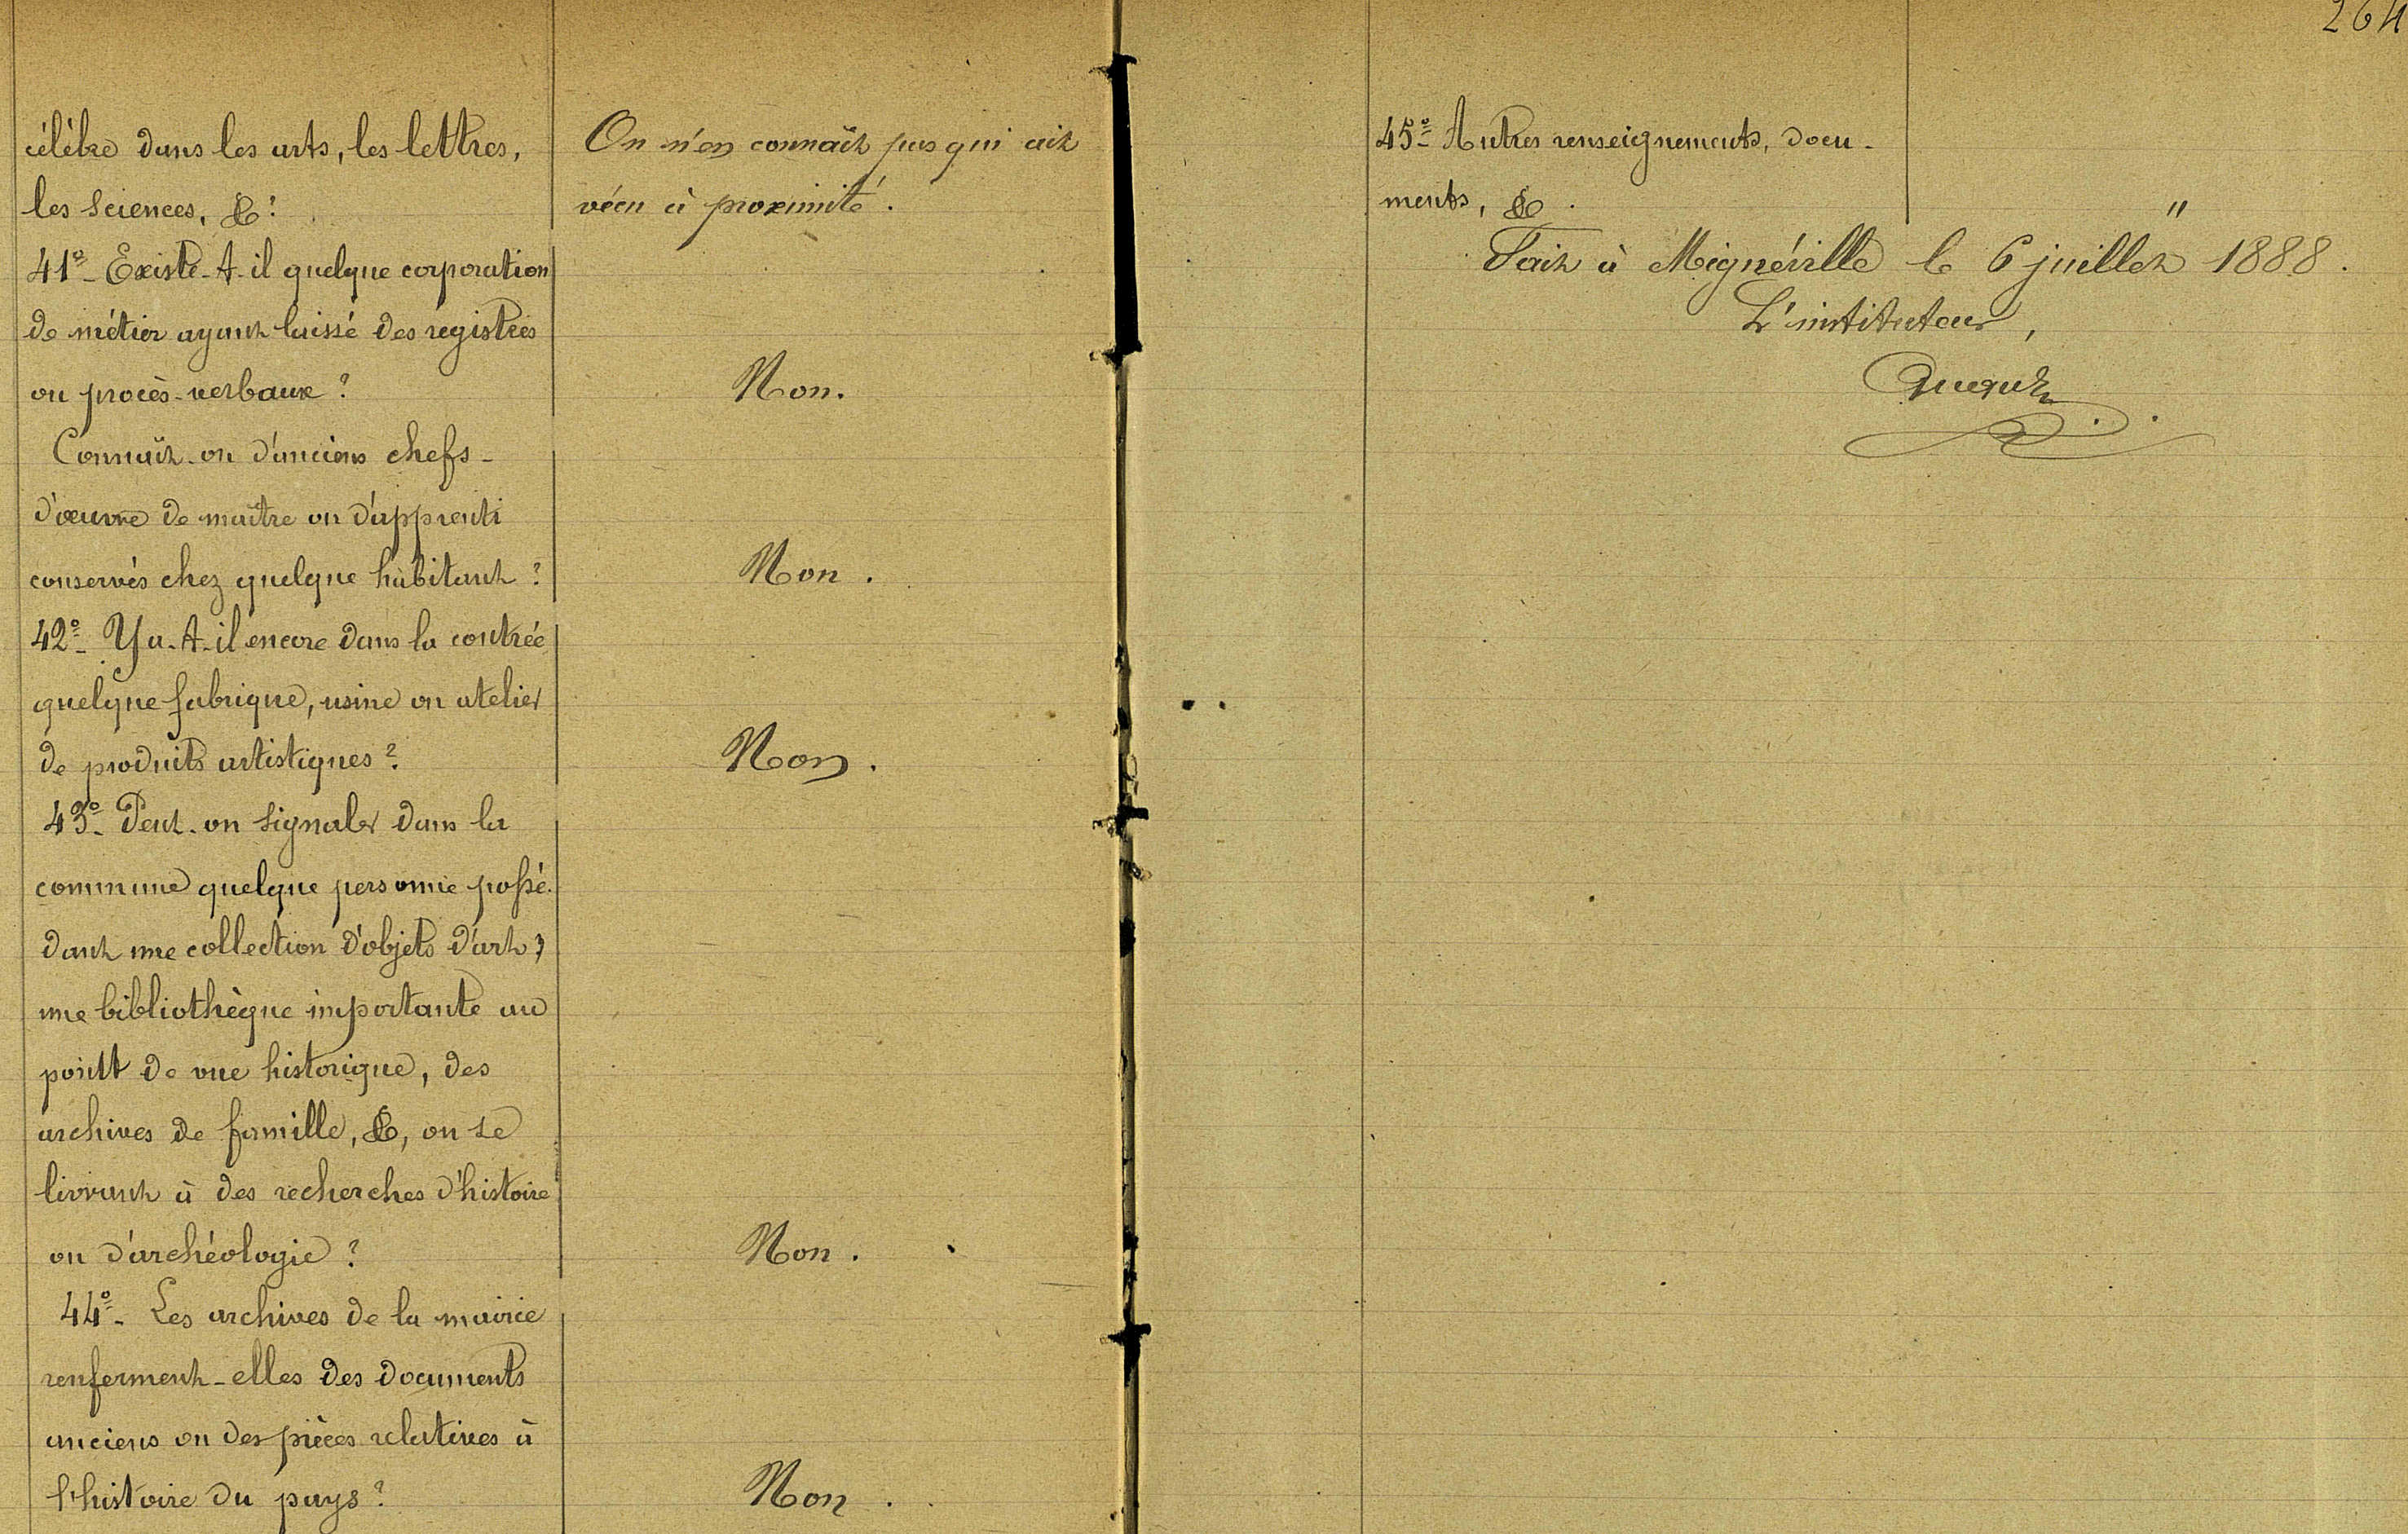 célèbre dans les arts, les lettres,
les sciences, &?
On n'en connaît pas qui ait
vécu à proximité.
41º- Existe-t-il quelque corporation
de métier ayant laissé des registres
ou procès-verbaux?
Non.
Connaît-on d'anciens chefs-
d'œuvre de maître ou d'apprenti
conservés chez quelque habitant?
Non.
42º- Y a-t-il encore dans la contrée
quelque fabrique, usine ou atelier
de produits artistiques?
Non.
43º- Peut-on signaler dans la
commune quelque personne possé-
dant une collection d'objets d'art,
une bibliothèque importante au
point de vue historique, des
archives de famille, &, ou se
livrant à des recherches d'histoire
ou d'archéologie?
Non.
44º- Les archives de la mairie
renferment-elles des documents
anciens ou des pièces relatives à
l'histoire du pays?
Non.
264
45º- Autres renseignements, docu-
ments, &.
"
Fait à Mignéville le 6 juillet 1888.
L'instituteur,